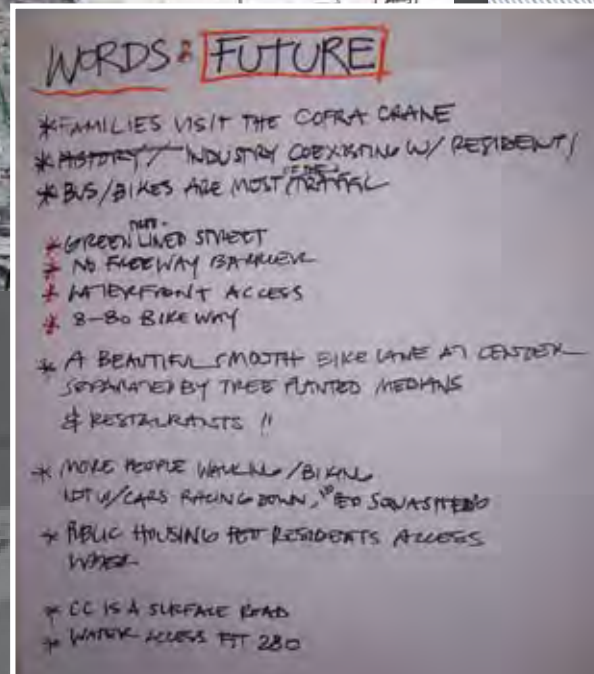 WORDS: FUTURE
* FAMILIES VISIT THE COPRA CRANE
* HISTORY/ INDUSTRY COEXISTING W/ RESIDENT/
* BUS/BIKES ARE MOST OF THE TRAFFIC
* GREEN LINED STREET
* NO FREEWAY BARRIER
* WATERFRONT ACCESS
* 8-80 BIKEWAY
* A BEAUTIFUL SMOOTH BIKE LANE AT CENTER
SEPARATED BY TREE PLANTED MEDIANS
& RESTAURANTS !!
* MORE PEOPLE WALKING/BIKING
W/CARS RACING DOWN,
* PUBLIC HOUSING RESIDENTS ACCESS
WATER
* CC IS A SURFACE ROAD
* WATER ACCESS 280